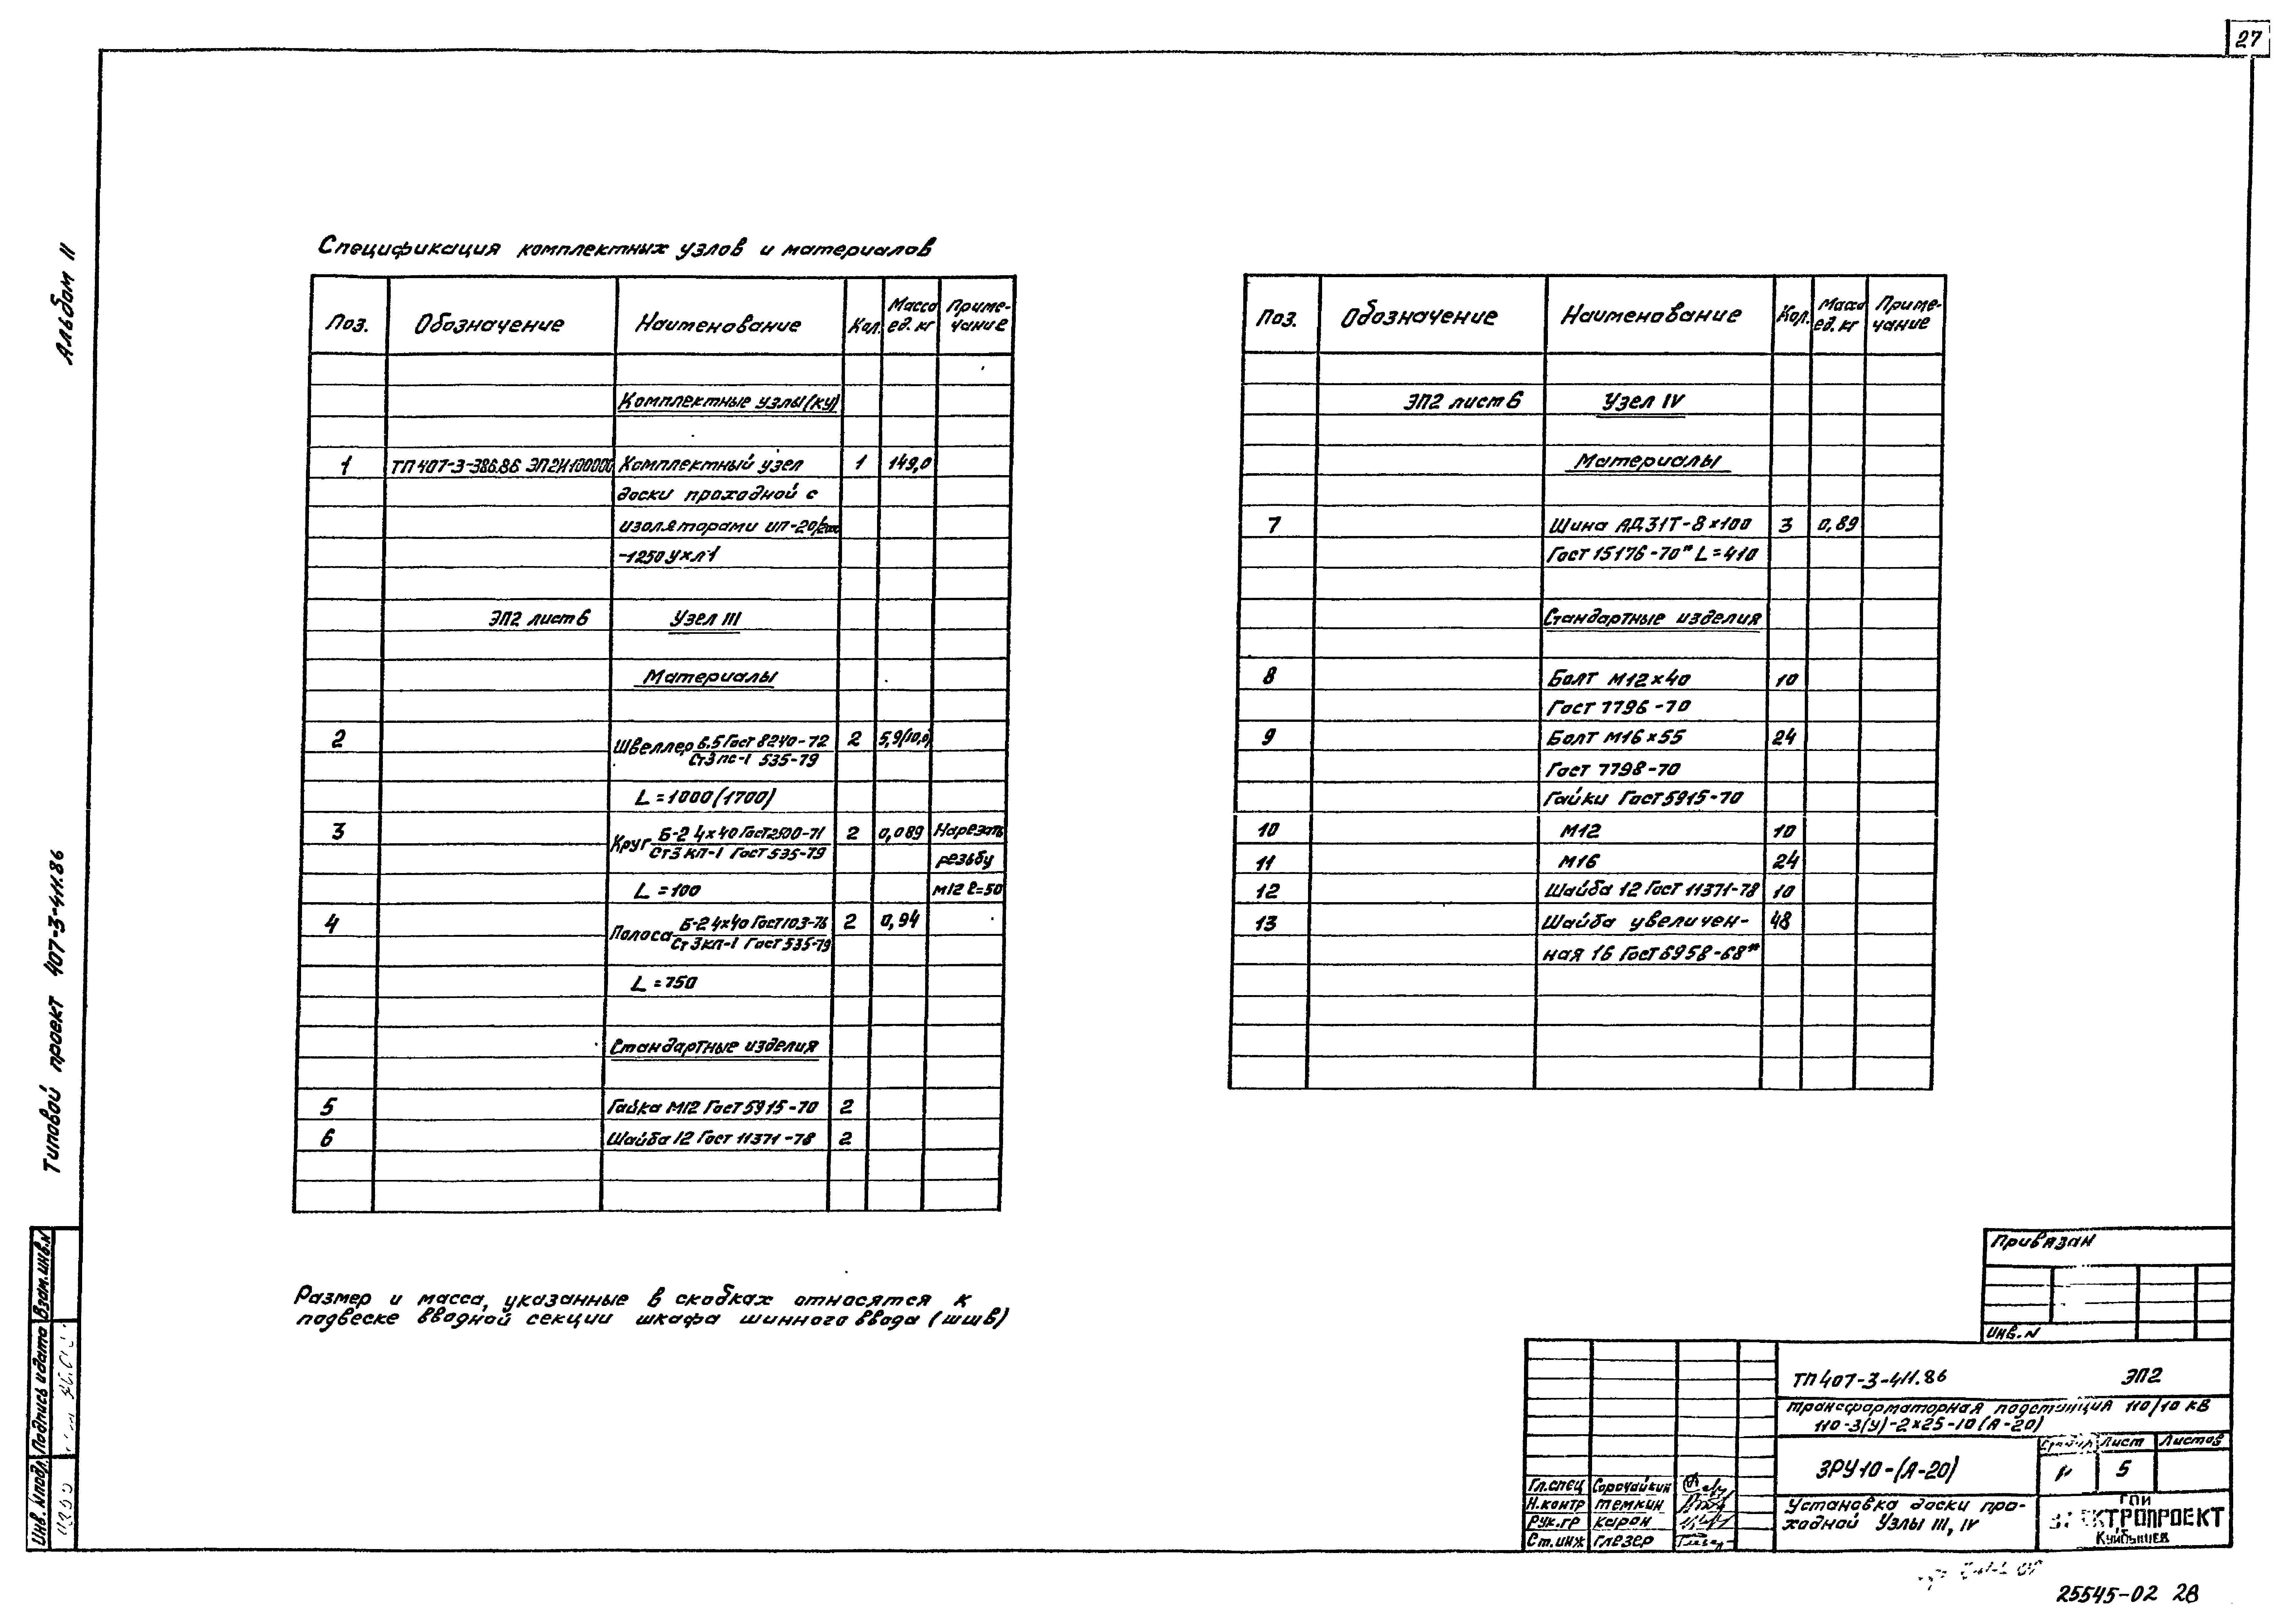 27
Альбом II
Типовой проект 407-3-411.86
Спецификация комплектных узлов и материалов
Поз. Обозначение Наименование Кол. Масса ед. кг Приме-чание
Комплектные узлы (КУ)
1 ТП 407-3-386.86 ЭП2И100000 Комплектный узел 1 149,0
доски проходной с
изоляторами ИП-20/2000
-1250 УХЛ1
ЭП2 лист 6 Узел III
Материалы
2 Швеллер 6.5 Гост 8240-72 2 5,9(10,0)
Ст3 пс-1 535-79
L = 1000 (1700)
3 Круг Б-2 4×40 Гост 2590-71 2 0,089 Нарезать
Ст3 КП-1 Гост 535-79 резьбу
L = 100 М12 l=50
4 Полоса Б-2 4×40 Гост 103-76 2 0,94
Ст3кп-1 Гост 535-79
L = 750
Стандартные изделия
5 Гайка М12 Гост 5915-70 2
6 Шайба 12 Гост 11371-78 2
Размер и масса, указанные в скобках относятся к
подвеске вводной секции шкафа шинного ввода (ШШВ)
Поз. Обозначение Наименование Кол. Масса ед. кг Приме-чание
ЭП2 лист 6 Узел IV
Материалы
7 Шина АД31Т-8×100 3 0,89
Гост 15176-70* L=410
Стандартные изделия
8 Болт М12×40 10
Гост 7796-70
9 Болт М16×55 24
Гост 7798-70
Гайки Гост 5915-70
10 М12 10
11 М16 24
12 Шайба 12 Гост 11371-78 10
13 Шайба увеличен- 48
ная 16 Гост 6958-68*
Привязан
Инв. N
ТП 407-3-411.86 ЭП2
Трансформаторная подстанция 110/10 кВ
110-3(У)-2×25-10(А-20)
ЗРУ10-(А-20)
Стадия Лист Листов
Р 5
Установка доски про-
ходной Узлы III, IV
ГПИ
ЭЛЕКТРОПРОЕКТ
Куйбышев
Гл.спец Сорочайкин
Н.контр Темкин
Рук.гр Карон
Ст.инж Глезер
Инв. N подл. Подпись и дата Взам.инв.N
25545-02 28